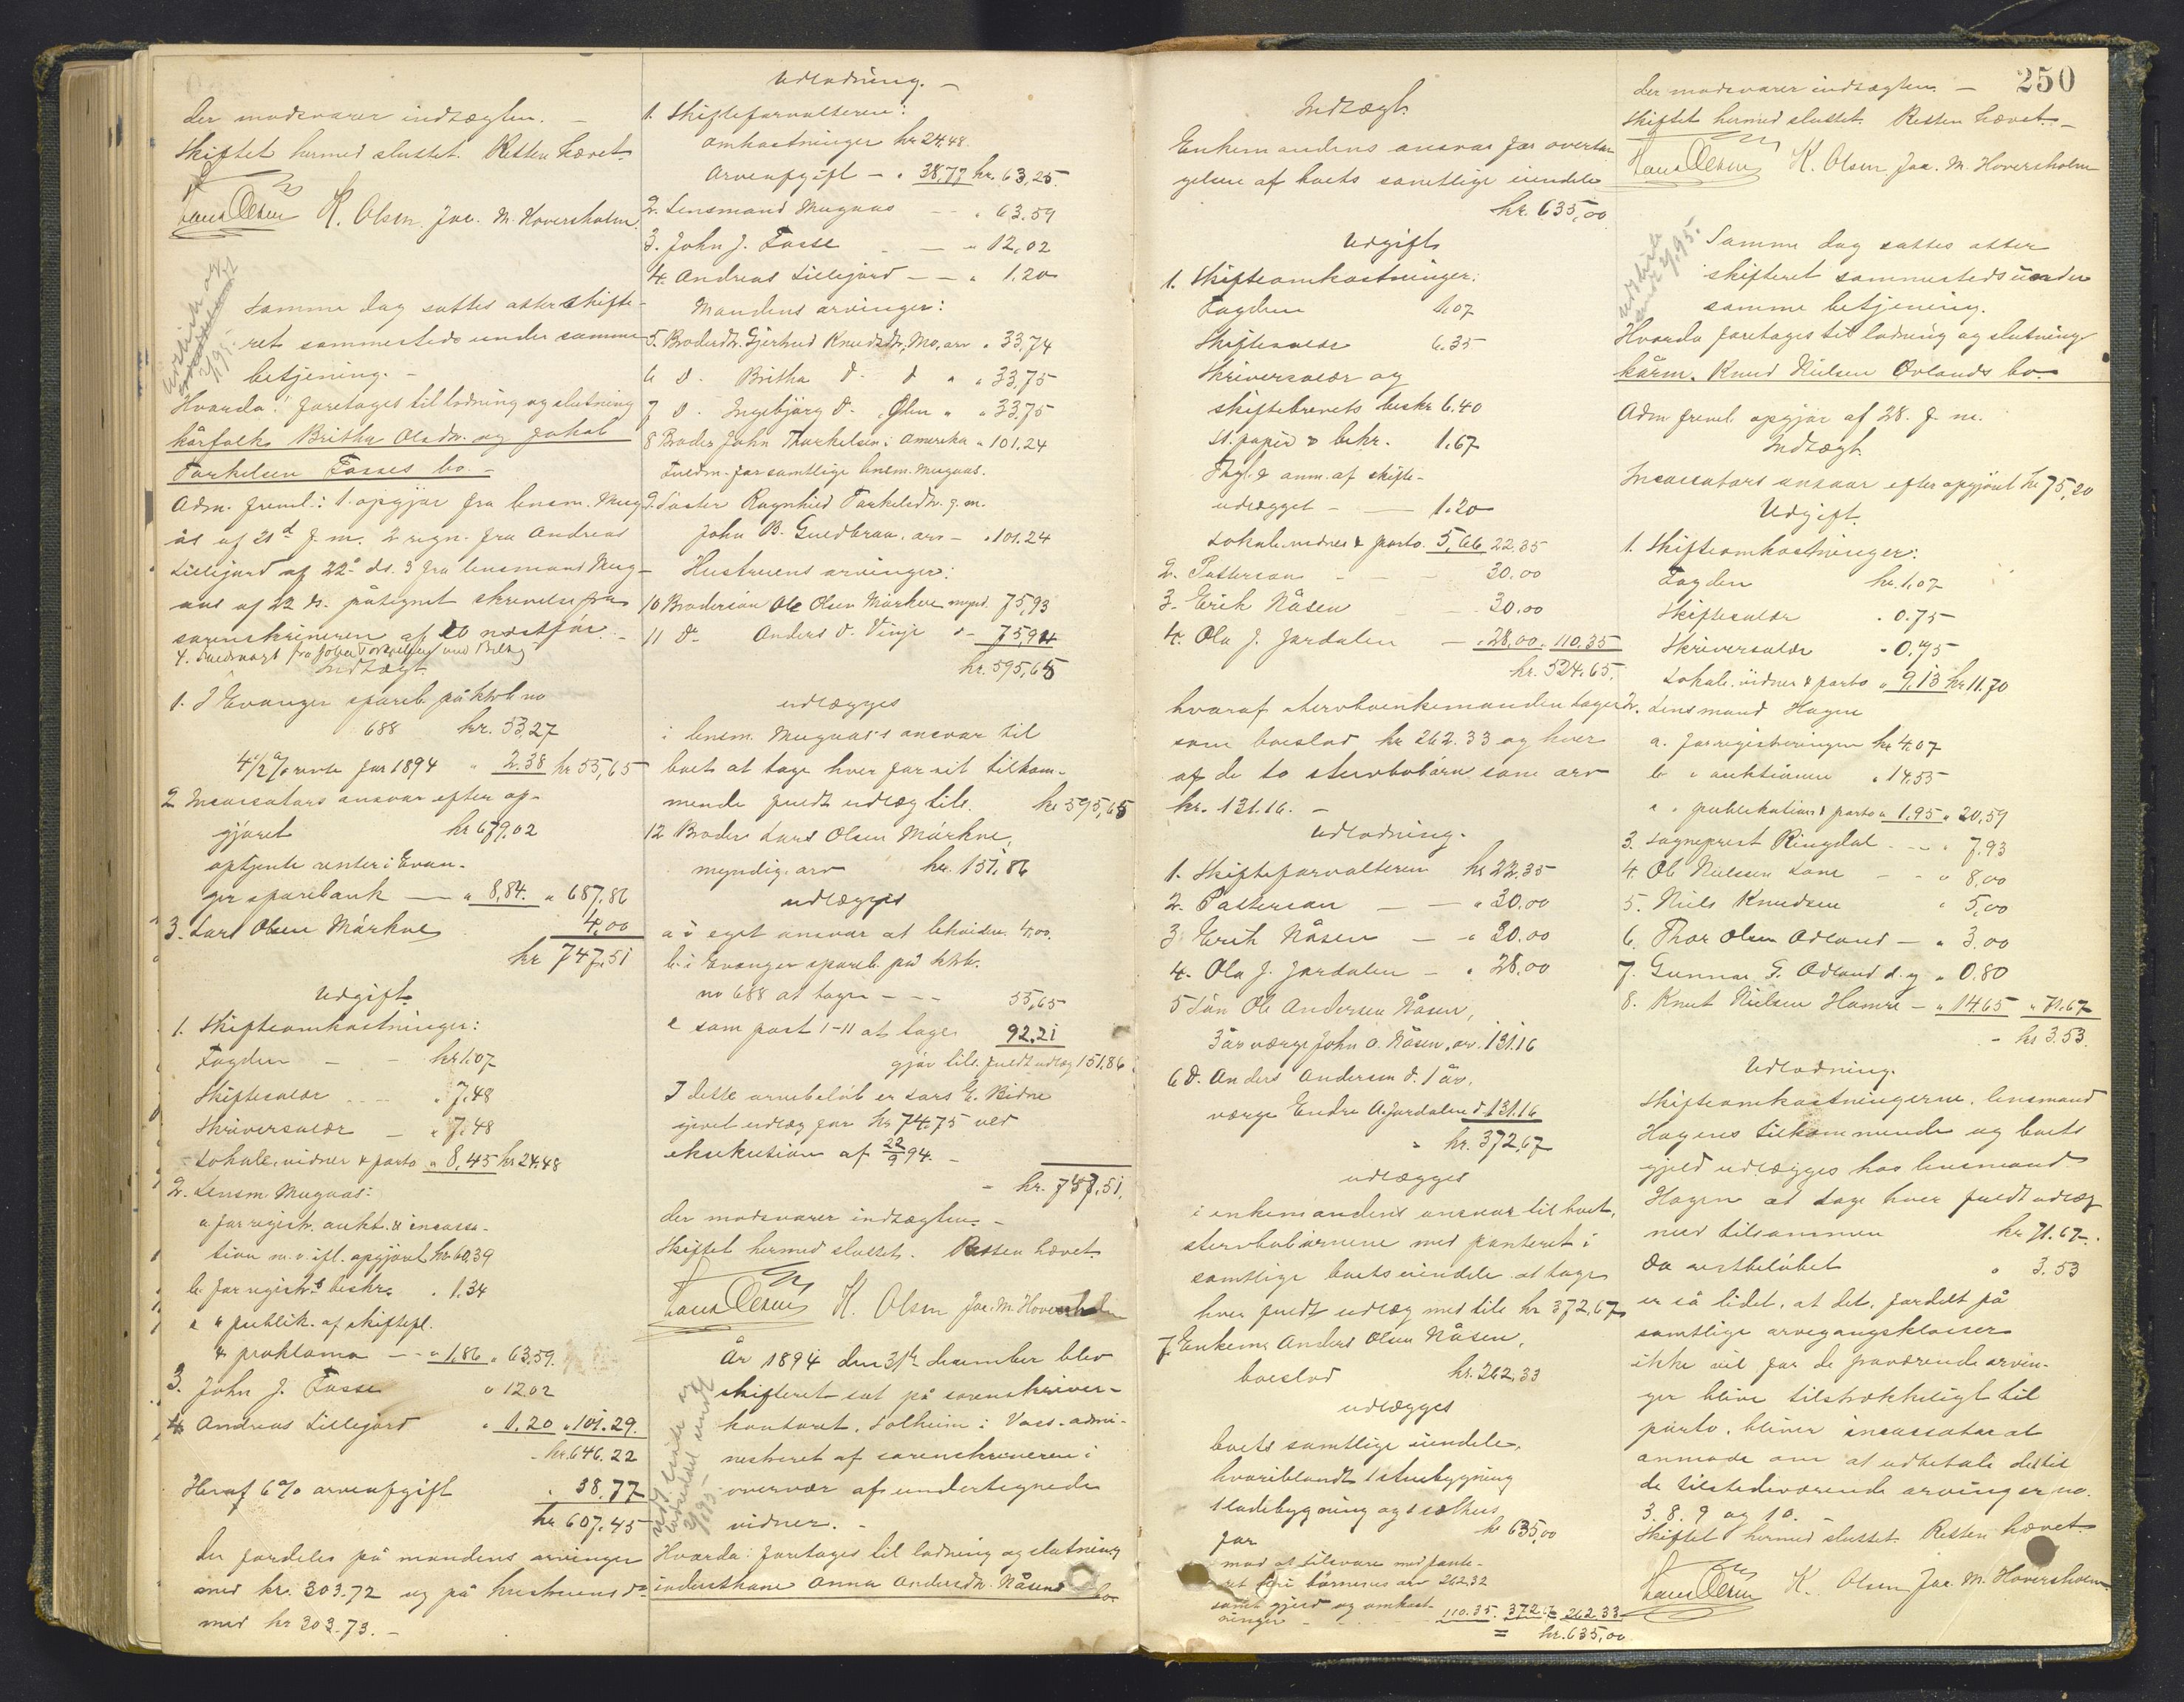 der modsvarer indtægten. –
Skiftet hermed sluttet. Retten hævet.
Hans Olsen K. Olsen. Jac. M. Hoversholm.
Samme dag sattes atter skifte-
ret sammesteds under samme
betjening. –
Hvorda: foretoges til lodning og slutning
kårfolk Britha Olsdr. og Jakob
Torkelsen Fosses bo. –
Adm. freml.: 1. opgjør fra lensm. Mug-
ås af 21d f. m. 2 regn. fra Andreas
Lillejord af 22d ds. 3 fra lensmand Mug-
aas af 22 ds. påtegnet skrivelse fra
sorenskriveren af 20 næstfør.
4. fuldmagt fra John Torkelsen med Bilag
Indtægt.
1. I Evanger spareb. på ktrb. no
688 kr. 53,27
4 1/2 % rente for 1894 " 2.38 kr 55,65
2 Incassators ansvar efter op-
gjøret kr 679,02
optjente renter i Evan-
ger sparebank — " 8,84. " 687,86
3. Lars Olsen Mørkve 4,00
kr 747,51
Udgift.
1. Skifteomkostninger:
Fogden — - kr 1.07
Skiftesalær - - " 7,48
Skriversalær — " 7,48
Lokale, vidner & porto " 8,45 kr 24,48
2. Lensm Mugaas:
a. for registr. aukt. & incassa-
tion m. v. ifl. opgjøret kr 60,39
b. for registr.s beskr. " 1.34
c " publik. af skiftepl.
& proklama — " 1,86 " 63,59.
3. John J. Fosse " 12.02
4 Andreas Lillejord " 1.20 " 101.29.
kr. 646.22
Heraf 6 % arveafgift " 38.77
kr 607.45
der fordeles på mandens arvinger
med kr. 303.72 og på hustruens do
med kr 303.73. –
Udlodning. –
1. Skifteforvalteren:
omkostninger kr. 24.48.
Arveafgift — " 38,77 kr. 63,25.
2. Lensmand Mugaas — - " 63.59
3. John J. Fosse - — " 12,02
4. Andreas Lillejord — — " 1.20
Mandens arvinger:
5. Broderdr. Gjertrud Knudsdr, Mo, arv " 33,74
6 d. Britha d. d " " 33,75
7 d. Ingebjørg d. Øen " " 33,75
8 Broder John Thorkelsen i Amerika " 101.24
Fuldm. for samtlige lensm. Mugaas.
9. Søster Ragnhild Torkelsdr. g. m.
John B. Guldbraa, arv — " 101.24
Hustruens arvinger:
10 Brodersøn Ole Olsen Mørkve mynd. 75,93
11 do Anders d. Vinje d — 75,94
kr. 595,65
udlægges
i lensm. Mugaas's ansvar til
boet at tage hver for sit tilkom-
mende fuldt udlæg tils. kr 595,65
12 Broder Lars Olsen Mørkve,
myndig, arv kr. 151,86
udlægges
a i eget ansvar at beholde 4,00.
b. i Evanger spareb. på ktrb.
no 688 at tage — - - 55,65
c som post 1–11 at tage 92,21
gjør tils. fuldt udlæg 151,86.
I dette arvebeløb er Lars E. Bidne
givet udlæg for kr 74.75 ved
eksekution af 22/9 94. –
– kr. 747,51.
der modsvarer indtægten. –
Skiftet hermed sluttet. Retten hævet.
Hans Olsen K. Olsen Jac. M. Hoversholm
År 1894 den 31te december blev
skifteret sat på sorenskriver-
kontoret, Solheim i Voss – admi-
nistreret af sorenskriveren i
overvær af undertegnede
vidner. –
Hvorda: foretoges til lodning og slutning
inderstkone Anna Andersdr. Nåsens bo
Indtægt.
Enkemandens ansvar for overta-
gelsen af boets samtlige eiendele
kr. 635,00
Udgift.
1. Skifteomkostninger:
Fogden 1.07
Skiftesalær 6.35
Skriversalær og
skiftebrevets beskr. 6.40
St. papir & bekr. 1.67
Thgl. & anm. af skifte-
udlægget — — 1.20
Lokale, vidner & porto. 5,66 22.35
2. Patterson — — 30.00
3. Erik Nåsen — 30.00
4. Ola J. Jordalen — " 28,00 " 110.35
kr. 524.65.
hvoraf stervboenkemanden tager
som boeslod kr 262.33 og hver
af de to stervbobørn som arv
kr. 131.16. –
Udlodning.
1. Skifteforvalteren kr 22.35
2. Patterson — — " 30.00
3 Erik Nåsen — " 30.00
4. Ola J. Jordalen — " 28.00
5 Søn Ole Andersen Nåsen,
3 år værge John O. Nåsen, arv. 131.16
6 d. Anders Andersen d. 1 år,
værge Endre A. Jordalen d 131.16
– kr. 372,67
udlægges
i enkemandens ansvar til boet,
stervbobørnene med panteret i
samtlige boets eiendele at tage
hver fuldt udlæg med tils kr 372,67
7. Enkem Anders Olsen Nåsen,
boeslod kr. 262.33
udlægges
boets samtlige eiendele,
hvoriblandt 1 stuebygning
1 ladebygning og 1 sælhus
for kr 635,00
mod at tilsvare med pante-
ret for børnenes arv 262.32
samt gjeld og omkost-
ninger – 110.35. 372,67 262.33
= kr. 635,00
250
der modsvarer indtægten. —
Skiftet hermed sluttet. Retten hævet. –
Hans Olsen K. Olsen Jac. M. Hoversholm
Samme dag sattes atter
skifteret sammesteds under
samme betjening.
Hvorda foretoges til lodning og slutning
kårm. Knud Nielsen Ørlands bo
Adm freml. opgjør af 28. f. m.
Indtægt
Incassators ansvar efter opgjøret kr 75,20
Udgift.
1. Skifteomkostninger:
Fogden kr. 1,07
Skiftesalær " 0.75
Skriversalær " 0,75
Lokale, vidner & porto " 9,13 kr 11.70
2. Lensmand Hagen
a. for registreringen kr 4.07
b " auktionen " 14.55
c " publikation & porto " 1.95 " 20,59
3. Sogneprest Ringdal - – " 7.93
4. Ole Nielsen Lone – – " 8,00
5. Niels Knudsen " 5,00
6. Thor Olsen Ødland — " 3.00
7. Gunnar T. Ødland d. y " 0,80
8. Knut Nielsen Hamre — " 14.65 " 71.67
– kr 3.53.
Udlodning.
Skifteomkostningerne, lensmand
Hagens tilkommende og boets
gjeld udlægges hos lensmand
Hagen at tage hver fuldt udlæg
med tilsammen kr 71.67.
Da restbeløbet " 3.53
er så lidet, at det, fordelt på
samtlige arvegangsklasser
ikke vil for de fraværende arvin-
ger blive tilstrækkeligt til
porto, bliver incassator at
anmode om at udbetale det til
de tilstedeværende arvinger no.
3. 8. 9 og 10. –
Skiftet hermed sluttet. Retten hævet.
Hans Olsen K. Olsen Jac. M. Hoversholm.